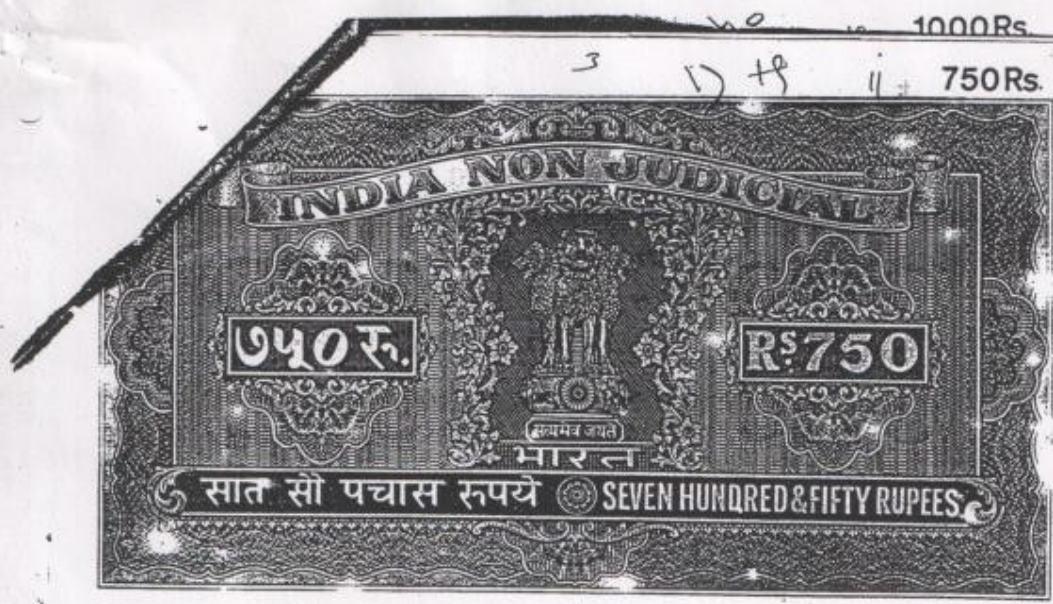 1000Rs.
750Rs.
INDIA NON JUDICIAL
७५० रु.
RS.750
सत्यमेव जयते
भारत
सात सौ पचास रुपये SEVEN HUNDRED & FIFTY RUPEES